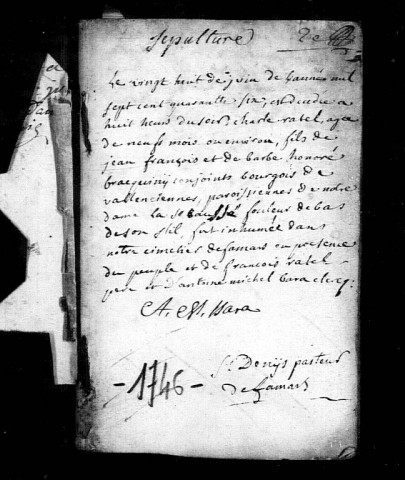 sepulture 2e
Le vingt huit de juin de l'année mil
sept cent quarante six, est décédé a
huit heurs du soir, charle ratel, agé
de neufs mois ou environ, fils de
jean françois et de barbe honoré
bracquiny conjoints bourgois de
vallenciennes, paroissiennes de notre
dame la chaussé fouleur de bas
de son stil, fut inhumée dans
notre cimetier de famars en présence
du peuple et de francois ratel
pere et d'antoine michel bara clercq:
A. M. Bara
St Denijs pasteur
de famars
-1746-